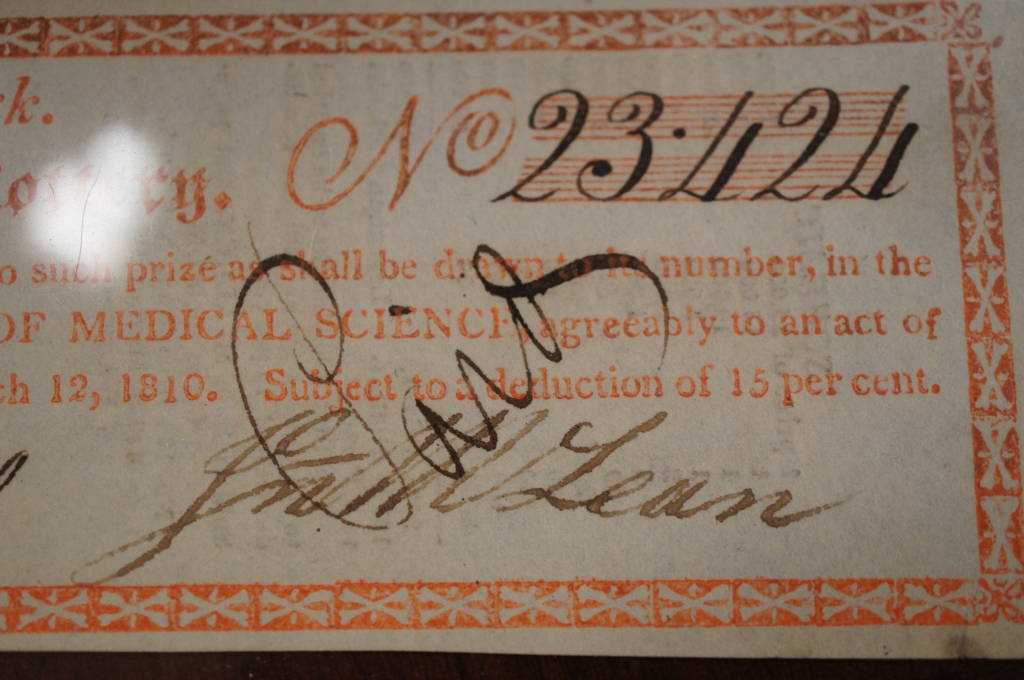 k.
Lottery. No 23.424
o such prize as shall be drawn to its number, in the
OF MEDICAL SCIENCE, agreeably to an act of
ch 12, 1810. Subject to a deduction of 15 per cent.
Jn M Lean